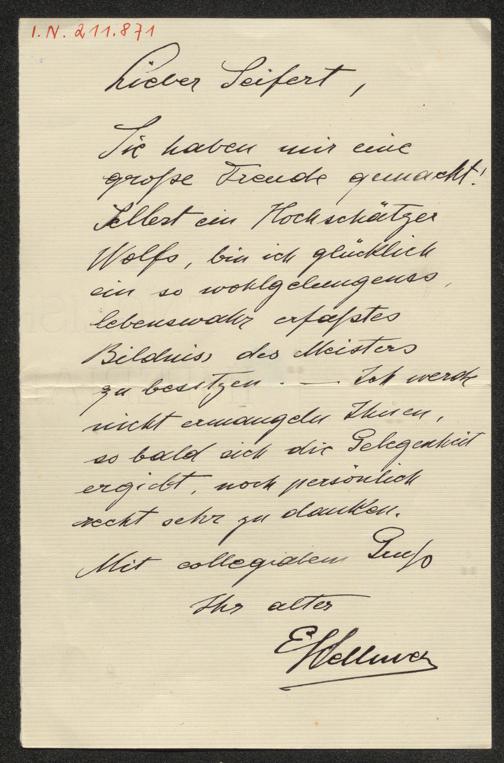 I.N. 211.871
Lieber Seifert,
Sie haben mir eine
große Freude gemacht!
Selbst ein Hochschätzer
Wolfs, bin ich glücklich
ein so wohlgelungenes,
lebenswahr erfaßtes
Bildniss des Meisters
zu besitzen. — Ich werde
nicht ermangeln Ihnen,
so bald sich die Gelegenheit
ergiebt, noch persönlich
recht sehr zu danken.
Mit collegialem Gruß
Ihr alter
EHellmer